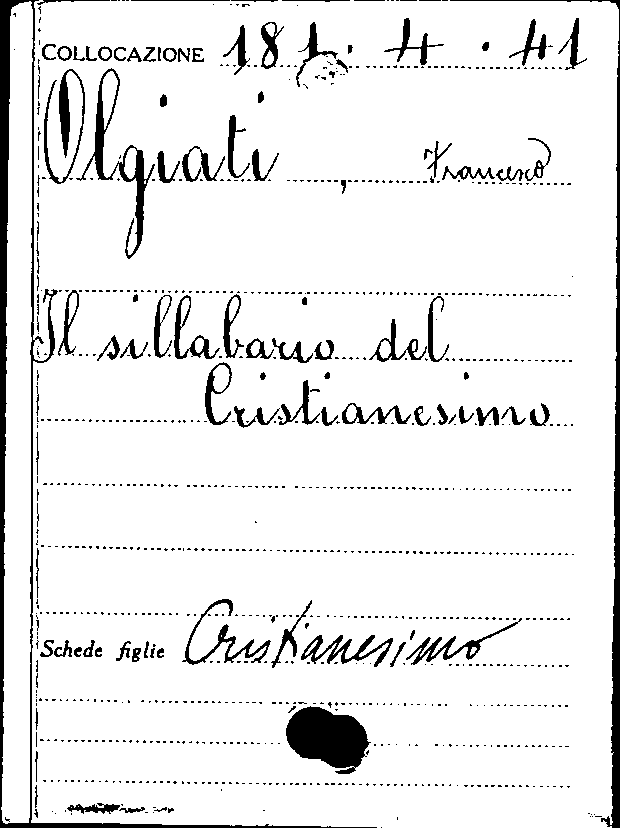 COLLOCAZIONE 181. 4. 41
Olgiati, Francesco
Il sillabario del
Cristianesimo
Schede figlie Cristianesimo